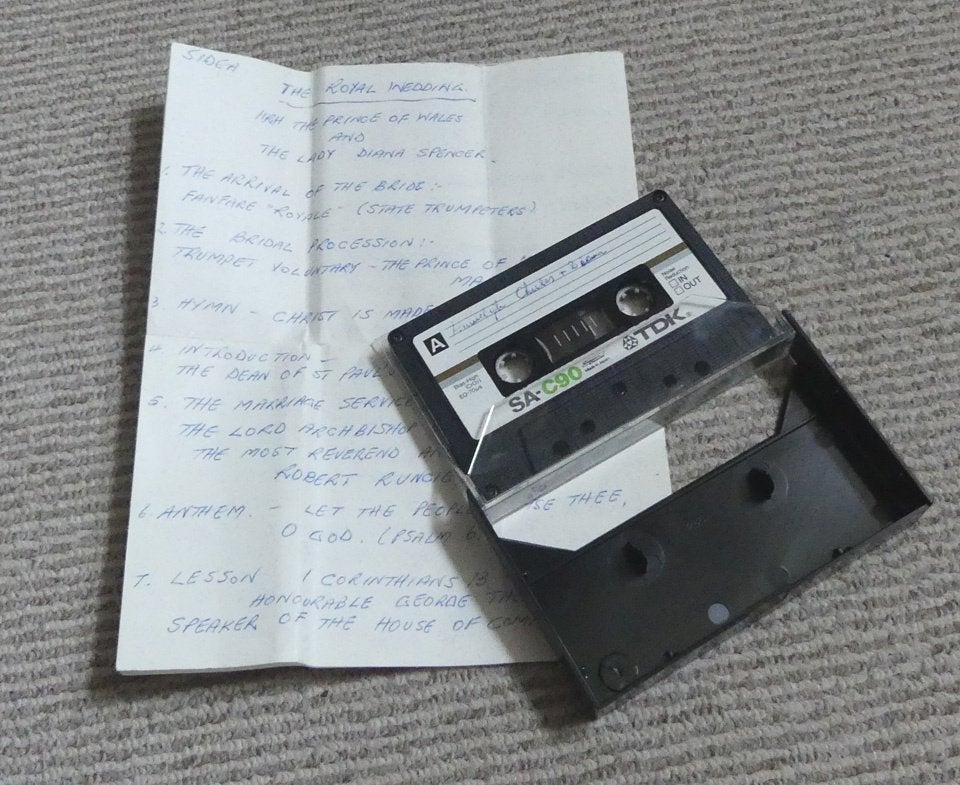 SIDE A
THE ROYAL WEDDING.
HRH THE PRINCE OF WALES
AND
THE LADY DIANA SPENCER.
1. THE ARRIVAL OF THE BRIDE:-
FANFARE "ROYALE" (STATE TRUMPETERS)
2. THE BRIDAL PROCESSION:-
TRUMPET VOLUNTARY - THE PRINCE OF
MA
3. HYMN - CHRIST IS MADE
4. INTRODUCTION -
THE DEAN OF ST PAUL'S
5. THE MARRIAGE SERVICE
THE LORD ARCHBISHO
THE MOST REVEREND
ROBERT RUNCIE
6. ANTHEM. - LET THE PEOPLE SE THEE,
O GOD. (PSALM 6
7. LESSON 1 CORINTHIANS 13
HONOURABLE GEORGE
SPEAKER OF THE HOUSE OF COM
A
Noise
Reduction
IN
OUT
Bias:High
EQ:70μs
SA-C90
TDK